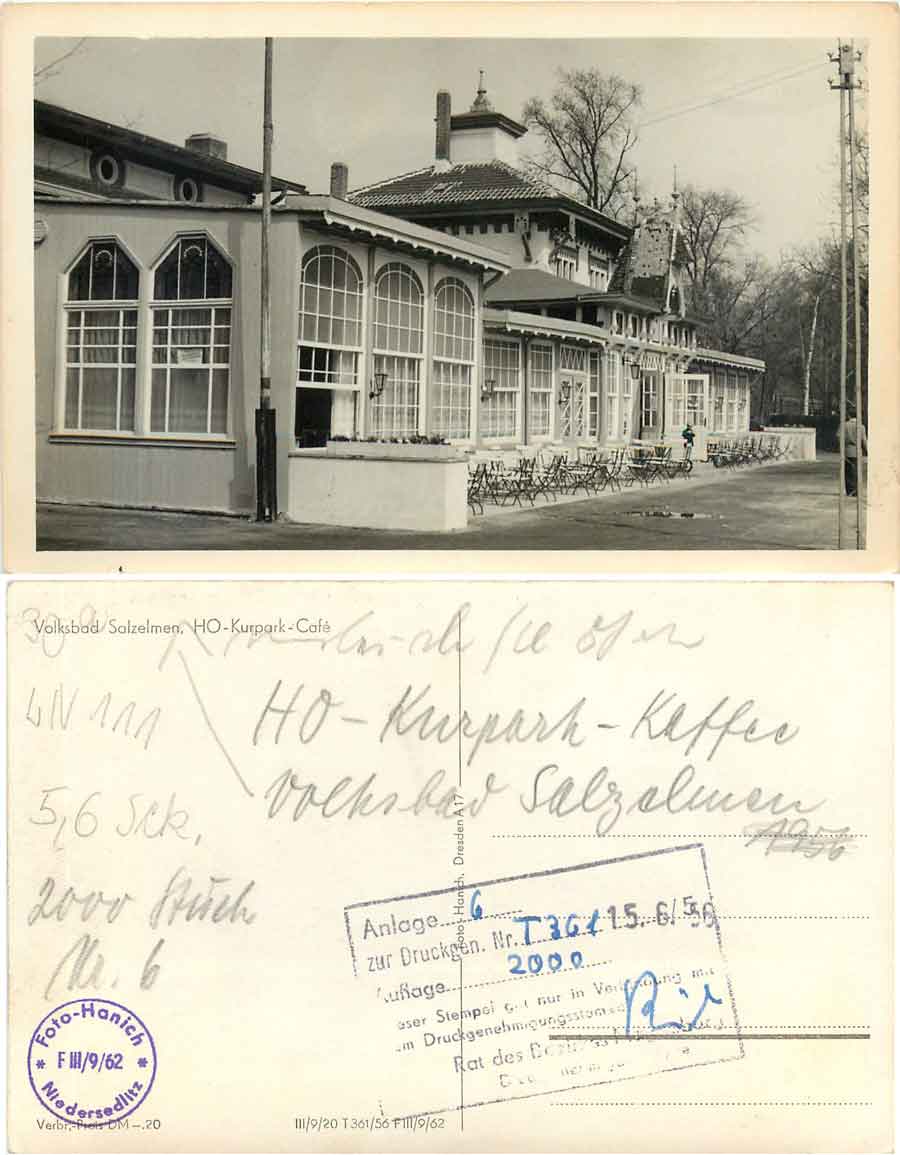 Volksbad Salzelmen, HO-Kurpark-Café
HO-Kurpark-Kaffee
Volksbad Salzelmen
1956
5,6 Sek.
2000 Stück
Nr. 6
Foto-Hanich, Dresden A 17
Anlage 6
zur Druckgen. Nr. T 361 15. 6/5 56
Auflage 2000
eser Stempel gilt nur in Verbindung mit
m Druckgenehmigungsstempel
Rat des Bezirkes
Foto-Hanich
* F III/9/62 *
Niedersedlitz
Verbr.-Preis DM –.20
III/9/20 T 361/56 F III/9/62